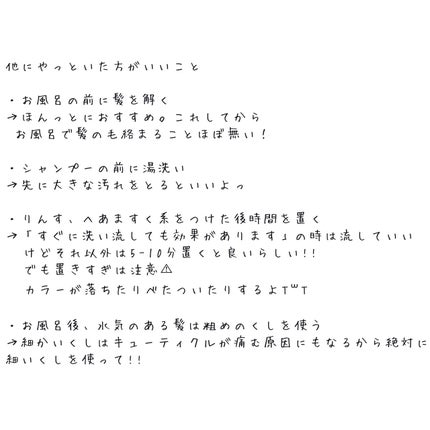 他にやっといた方がいいこと
・お風呂の前に髪を解く
→ほんっとにおすすめ。これしてから
お風呂で髪のも絡まることほぼ無い!
・シャンプーの前に湯洗い
→先に大きな汚れをとるといいよっ
・りんす、へあますく系をつけた後時間を置く
→「すぐに洗い流しても効果があります」の時は流していい
けどそれ以外は5-10分置くと良いらしい!!
でも置きすぎは注意⚠
カラーが落ちたりべたついたりするよT^T
・お風呂後、水気のある髪は粗めのくしを使う
→細かいくしはキューティクルが痛む原因にもなるから絶対に
細いくしを使って!!